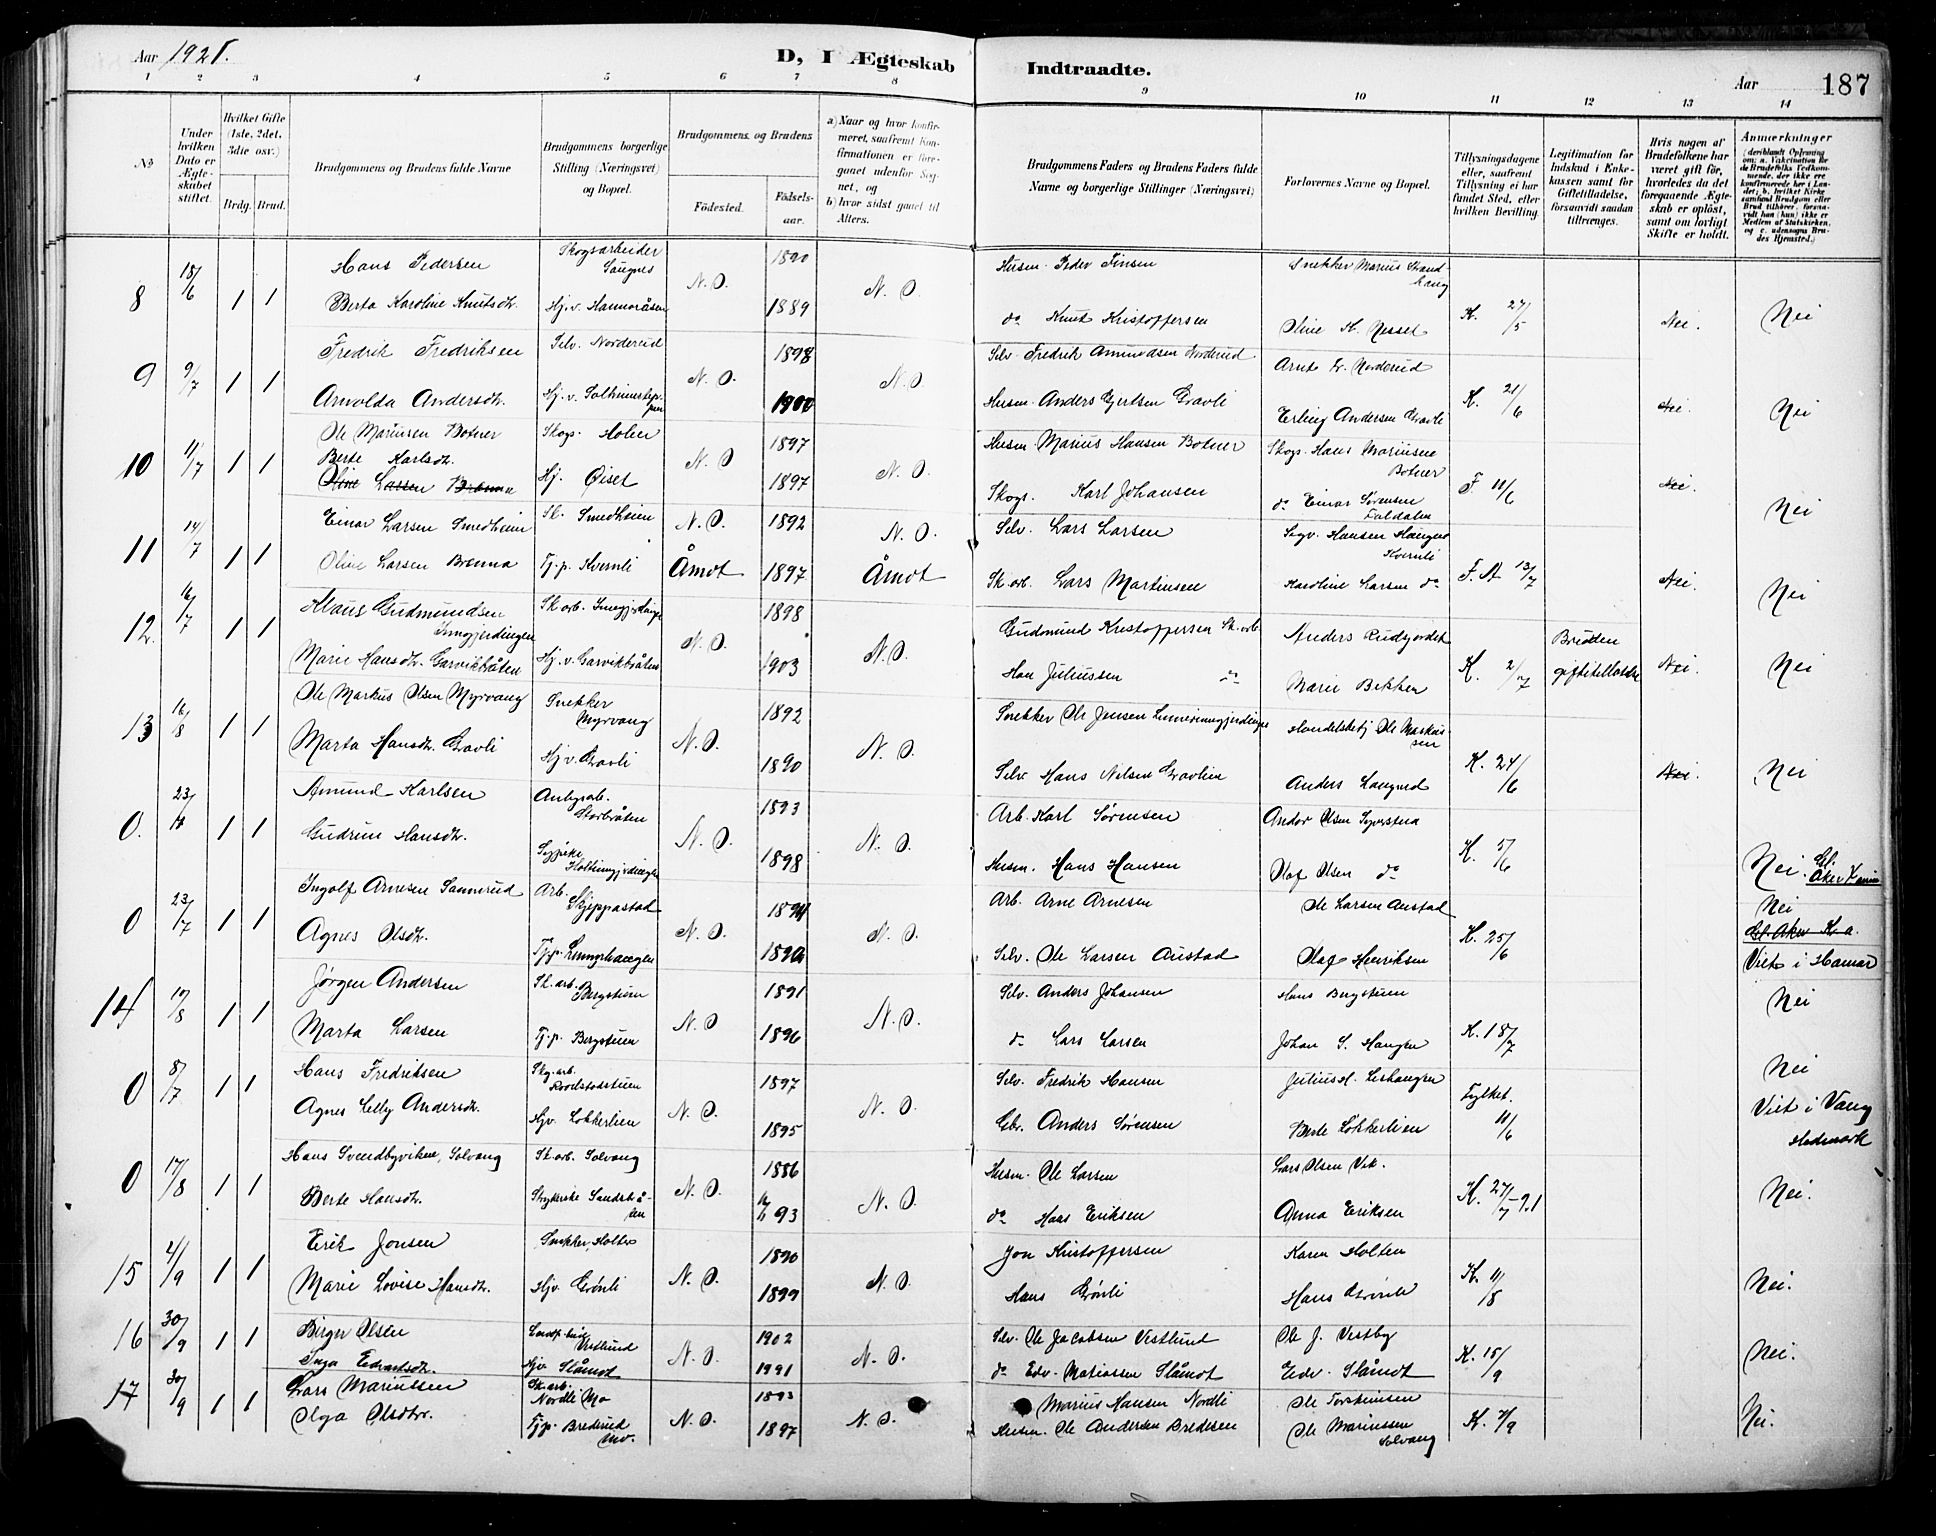 Aar 1921. D, I Ægteskab Indtraadte. Aar 187
1 2 3 4 5 6 7 8 9 10 11 12 13 14
No
Under hvilken Dato er Ægteskabet stiftet.
Hvilket Gifte (1ste, 2det, 3die osv.)
Brdg. Brud.
Brudgommens og Brudens fulde Navne
Brudgommens borgerlige Stilling (Næringsvei) og Bopæl.
Brudgommens og Brudens
Fødested. Fødselsaar.
a) Naar og hvor konfirmeret, saafremt Konfirmationen er foregaaet udenfor Sognet, og
b) hvor sidst gaaet til Alters.
Brudgommens Faders og Brudens Faders fulde Navne og borgerlige Stillinger (Næringsvei)
Forlovernes Navne og Bopæl.
Tillysningsdagene eller, saafremt Tillysning ei har fundet Sted, efter hvilken Bevilling.
Legitimation for Indskud i Enkekassen samt for Giftetilladelse, forsaavidt saadan tiltrænges.
Hvis nogen af Brudefolkene har været gift før, hvorledes da det foregaaende Ægteskab er opløst, samt om lovligt Skifte er holdt.
Anmærkninger
8 18/6 1 1 Hans Pedersen Skogsarbeider 1890 Husm. Peder Finsen Snekker Marius Strandhaug
Berta Karoline Knutsdtr. Hj. v. Hammeråsen N.O. 1889 N.O. do Knut Kristoffersen Oline K. Nesset K. 27/5 Nei. Nei
9 9/7 1 1 Fredrik Fredriksen Selv. Norderud 1898 Selv. Fredrik Amundsen Norderud Arnt Fr. Norderud
Arnolda Andersdtr. N.O. 1900 N.O. Husm. Anders Gjertsen Gravli Erling Andersen Gravli K. 21/6 Nei. Nei
10 11/7 1 1 Ole Mariusen Botner Skogs. Holen 1897 Husm. Marius Hansen Botner Skogs. Hans Mariusen Botner
Berte Karlsdtr.
Oline Larsen Brenna Hj. Øiset N.O 1897 N.O. Skogs. Karl Johansen do Einar Sørensen F. 11/6 Nei. Nei
11 14/7 1 1 Einar Larsen Smedheim Sk. Smedheim N.O. 1892 N.O. Selv. Lars Larsen Sigv. Hansen Haugen Kvernli
Oline Larsen Brenna Tj. p. Kvernli Åmot 1897 Åmot Sk. arb. Lars Martinsen Karoline Larsen do F. A 13/7 Nei. Nei
12. 16/7 1 1 Klaus Gudmundsen Inngjerdingen Sk. arb. 1898 Gudmund Kristoffersen Sk. arb. Anders Rudsjordet Bruden
Marie Hansdtr. Garvikbråten Hj. v. Garvikbråten N.O. 1903 N.O. Han Juliussen do Marie Bekken K. 2/7 Nei. Nei
13 16/8 1 1 Ole Markus Olsen Myrvang Snekker Myrvang 1892 Snekker Ole Jensen Handelsbetj Ole Markussen
Marta Hansdtr. Gravli Hj. v. Gravli N.O. 1890 N.O. Selv. Hans Nilsen Gravlien Anders Langrud K. 24/6 Nei. Nei
0. 23/ 1 1 Amund Karlsen Storbråten 1893 Arb. Karl Sørensen Andor Olsen
Gudrun Hansdtr. N.O. 1898 N.O. Husm. Hans Hansen Olaf Olsen do K. 5/6 Nei.
0 23/7 1 1 Ingolf Arnesen Arb. Skjeppastad 1894 Arb. Arne Arnesen Ole Larsen Austad Nei
Agnes Olsdtr. N.O. N.O. Selv. Ole Larsen Austad Olaf Henriksen K. 25/6 Viet i Hamar
14 1 1 Jørgen Andersen Sk. arb. Bergstuen 1891 Selv. Anders Johansen Hans Bergstuen Nei
Marta Larsen Tj. p. Bergstuen N.O 1896 N.O. do Lars Larsen Johan S. Haugen K. 18/7
0 8/7 1 1 Hans Fredriksen Skg. arb. 1897 Selv. Fredrik Hansen Julius H. Nei
Agnes Andersdtr. Hjv. Løkkerlien N.O. 1895 N.O. Anders Sørensen Berte Løkkerlien Fylket. 11/6 Viet i Vang Hedmark
0 17/8 1 1 Hans Svendbyviken, Solvang Sk. arb. Solvang 1886 Husm. Ole Larsen Lars Olsen Vik.
Berte Hansdtr. N.O. 93 N.O. do Hans Eriksen Anna Eriksen K. 27/7-21 Nei.
15 4/9 1 1 Erik Jonsen Snekker, Holter 1890 Jon Kristoffersen Karen Holten
Marie Lovise Hansdtr. Hjv. Grønli N.O. 1899 N.O. Hans Grønli Hans Grønli K. 11/8 Nei.
16 30/9 1 1 Birger Olsen Vestlund 1902 Selv. Ole Jacobsen Vestlund Ole J. Vestby
Inga Edvartsdtr. Hjv Slåmot N.O. 1991 N.O. do Edv. Matiassen Slåmot Edv. Slåmot K. 15/9 Nei.
17 30/9 1 1 Lars Mariussen Sk. arb. Nordli Mo 1893 Marius Hansen Nordli Ole Torstensen
Olga Olsdtr. Tj. p. Bredsrud Mo. N.O. 1897 N.O. Husm. Ole Andersen Bredesen Ole Mariussen Solvang K. 7/9 Nei.